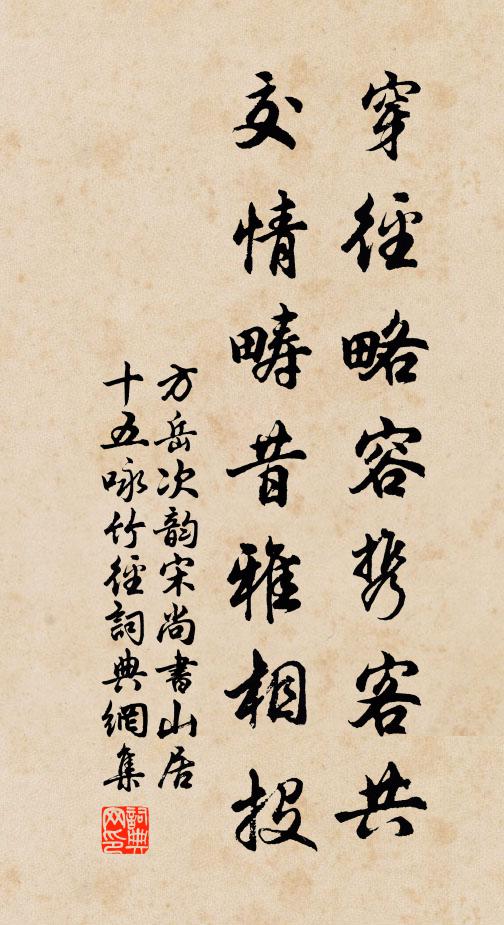 穿徑略容携客共
交情疇昔雅相投
方岳次韵宋尚書山居
十五咏竹徑詞典網集
詞典网印